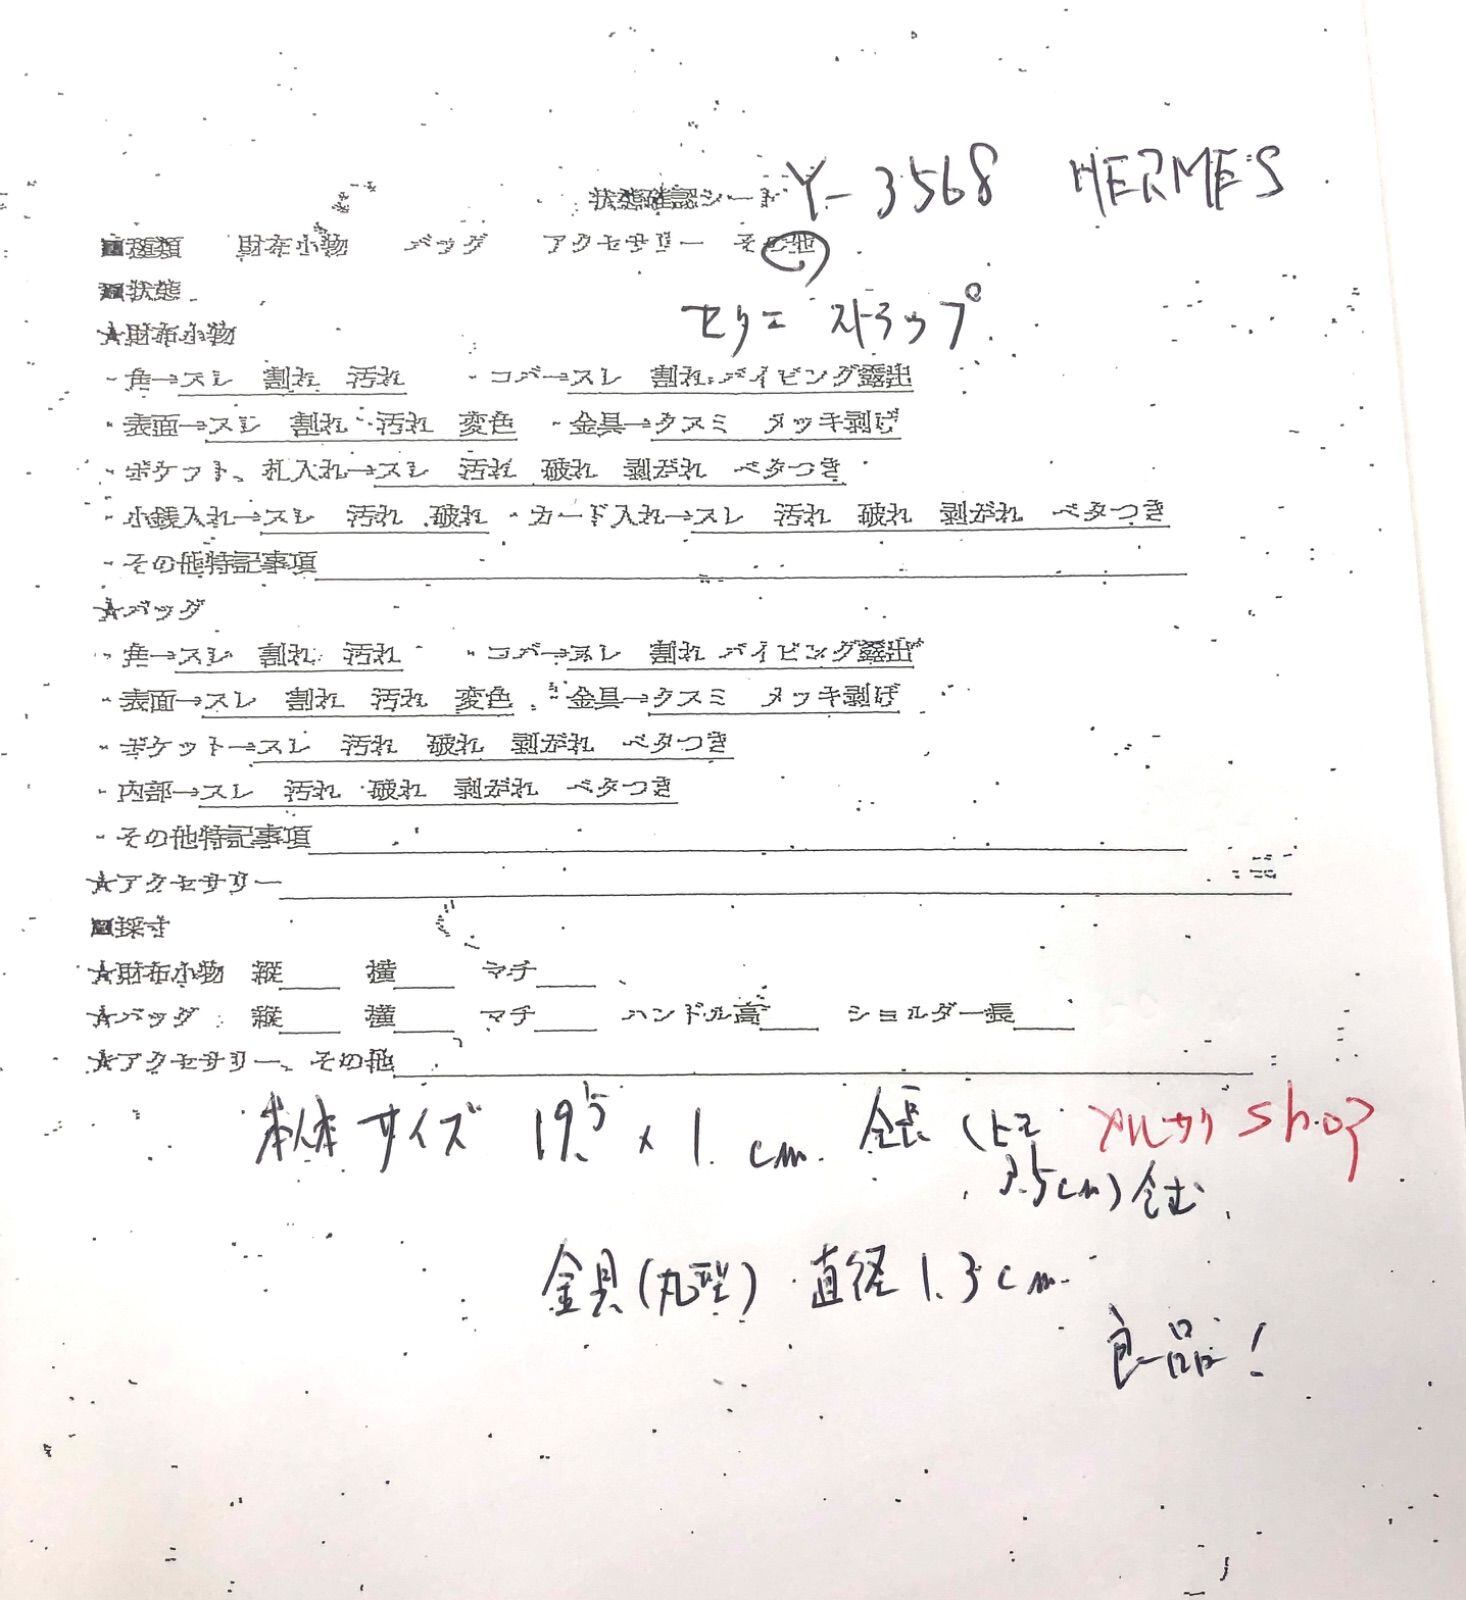 状態確認シート Y-3568 HERMES
■種類 財布小物 バッグ アクセサリー その他
■状態
セリエ ストラップ
★財布小物
・角→スレ 割れ 汚れ ・コバ→スレ 割れ パイピング露出
・表面→スレ 割れ 汚れ 変色 ・金具→クスミ メッキ剥げ
・ポケット、札入れ→スレ 汚れ 破れ 剥がれ ベタつき
・小銭入れ→スレ 汚れ 破れ ・カード入れ→スレ 汚れ 破れ 剥がれ ベタつき
・その他特記事項
★バッグ
・角→スレ 割れ 汚れ ・コバ→スレ 割れ パイピング露出
・表面→スレ 割れ 汚れ 変色 ・金具→クスミ メッキ剥げ
・ポケット→スレ 汚れ 破れ 剥がれ ベタつき
・内部→スレ 汚れ 破れ 剥がれ ベタつき
・その他特記事項
★アクセサリー
■採寸
★財布小物 縦 横 マチ
★バッグ 縦 横 マチ ハンドル高 ショルダー長
★アクセサリー、その他
本体サイズ 19.5 x 1 cm. 全長 メルカリ shop
3.5cm) 含む
金具(丸型) 直径 1.3cm
良品!